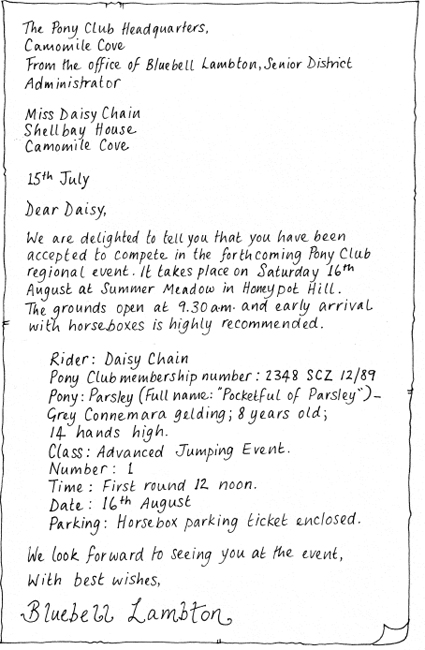 The Pony Club Headquarters,
Camomile Cove
From the office of Bluebell Lambton, Senior District
Administrator
Miss Daisy Chain
Shellbay House
Camomile Cove
15th July
Dear Daisy,
We are delighted to tell you that you have been
accepted to compete in the forthcoming Pony Club
regional event. It takes place on Saturday 16th
August at Summer Meadow in Honeypot Hill.
The grounds open at 9.30am. and early arrival
with horseboxes is highly recommended.
Rider: Daisy Chain
Pony Club membership number: 2348 SCZ 12/89
Pony: Parsley (Full name: "Pocketful of Parsley")–
Grey Connemara gelding; 8 years old;
14 hands high.
Class: Advanced Jumping Event.
Number: 1
Time: First round 12 noon.
Date: 16th August
Parking: Horsebox parking ticket enclosed.
We look forward to seeing you at the event,
With best wishes,
Bluebell Lambton